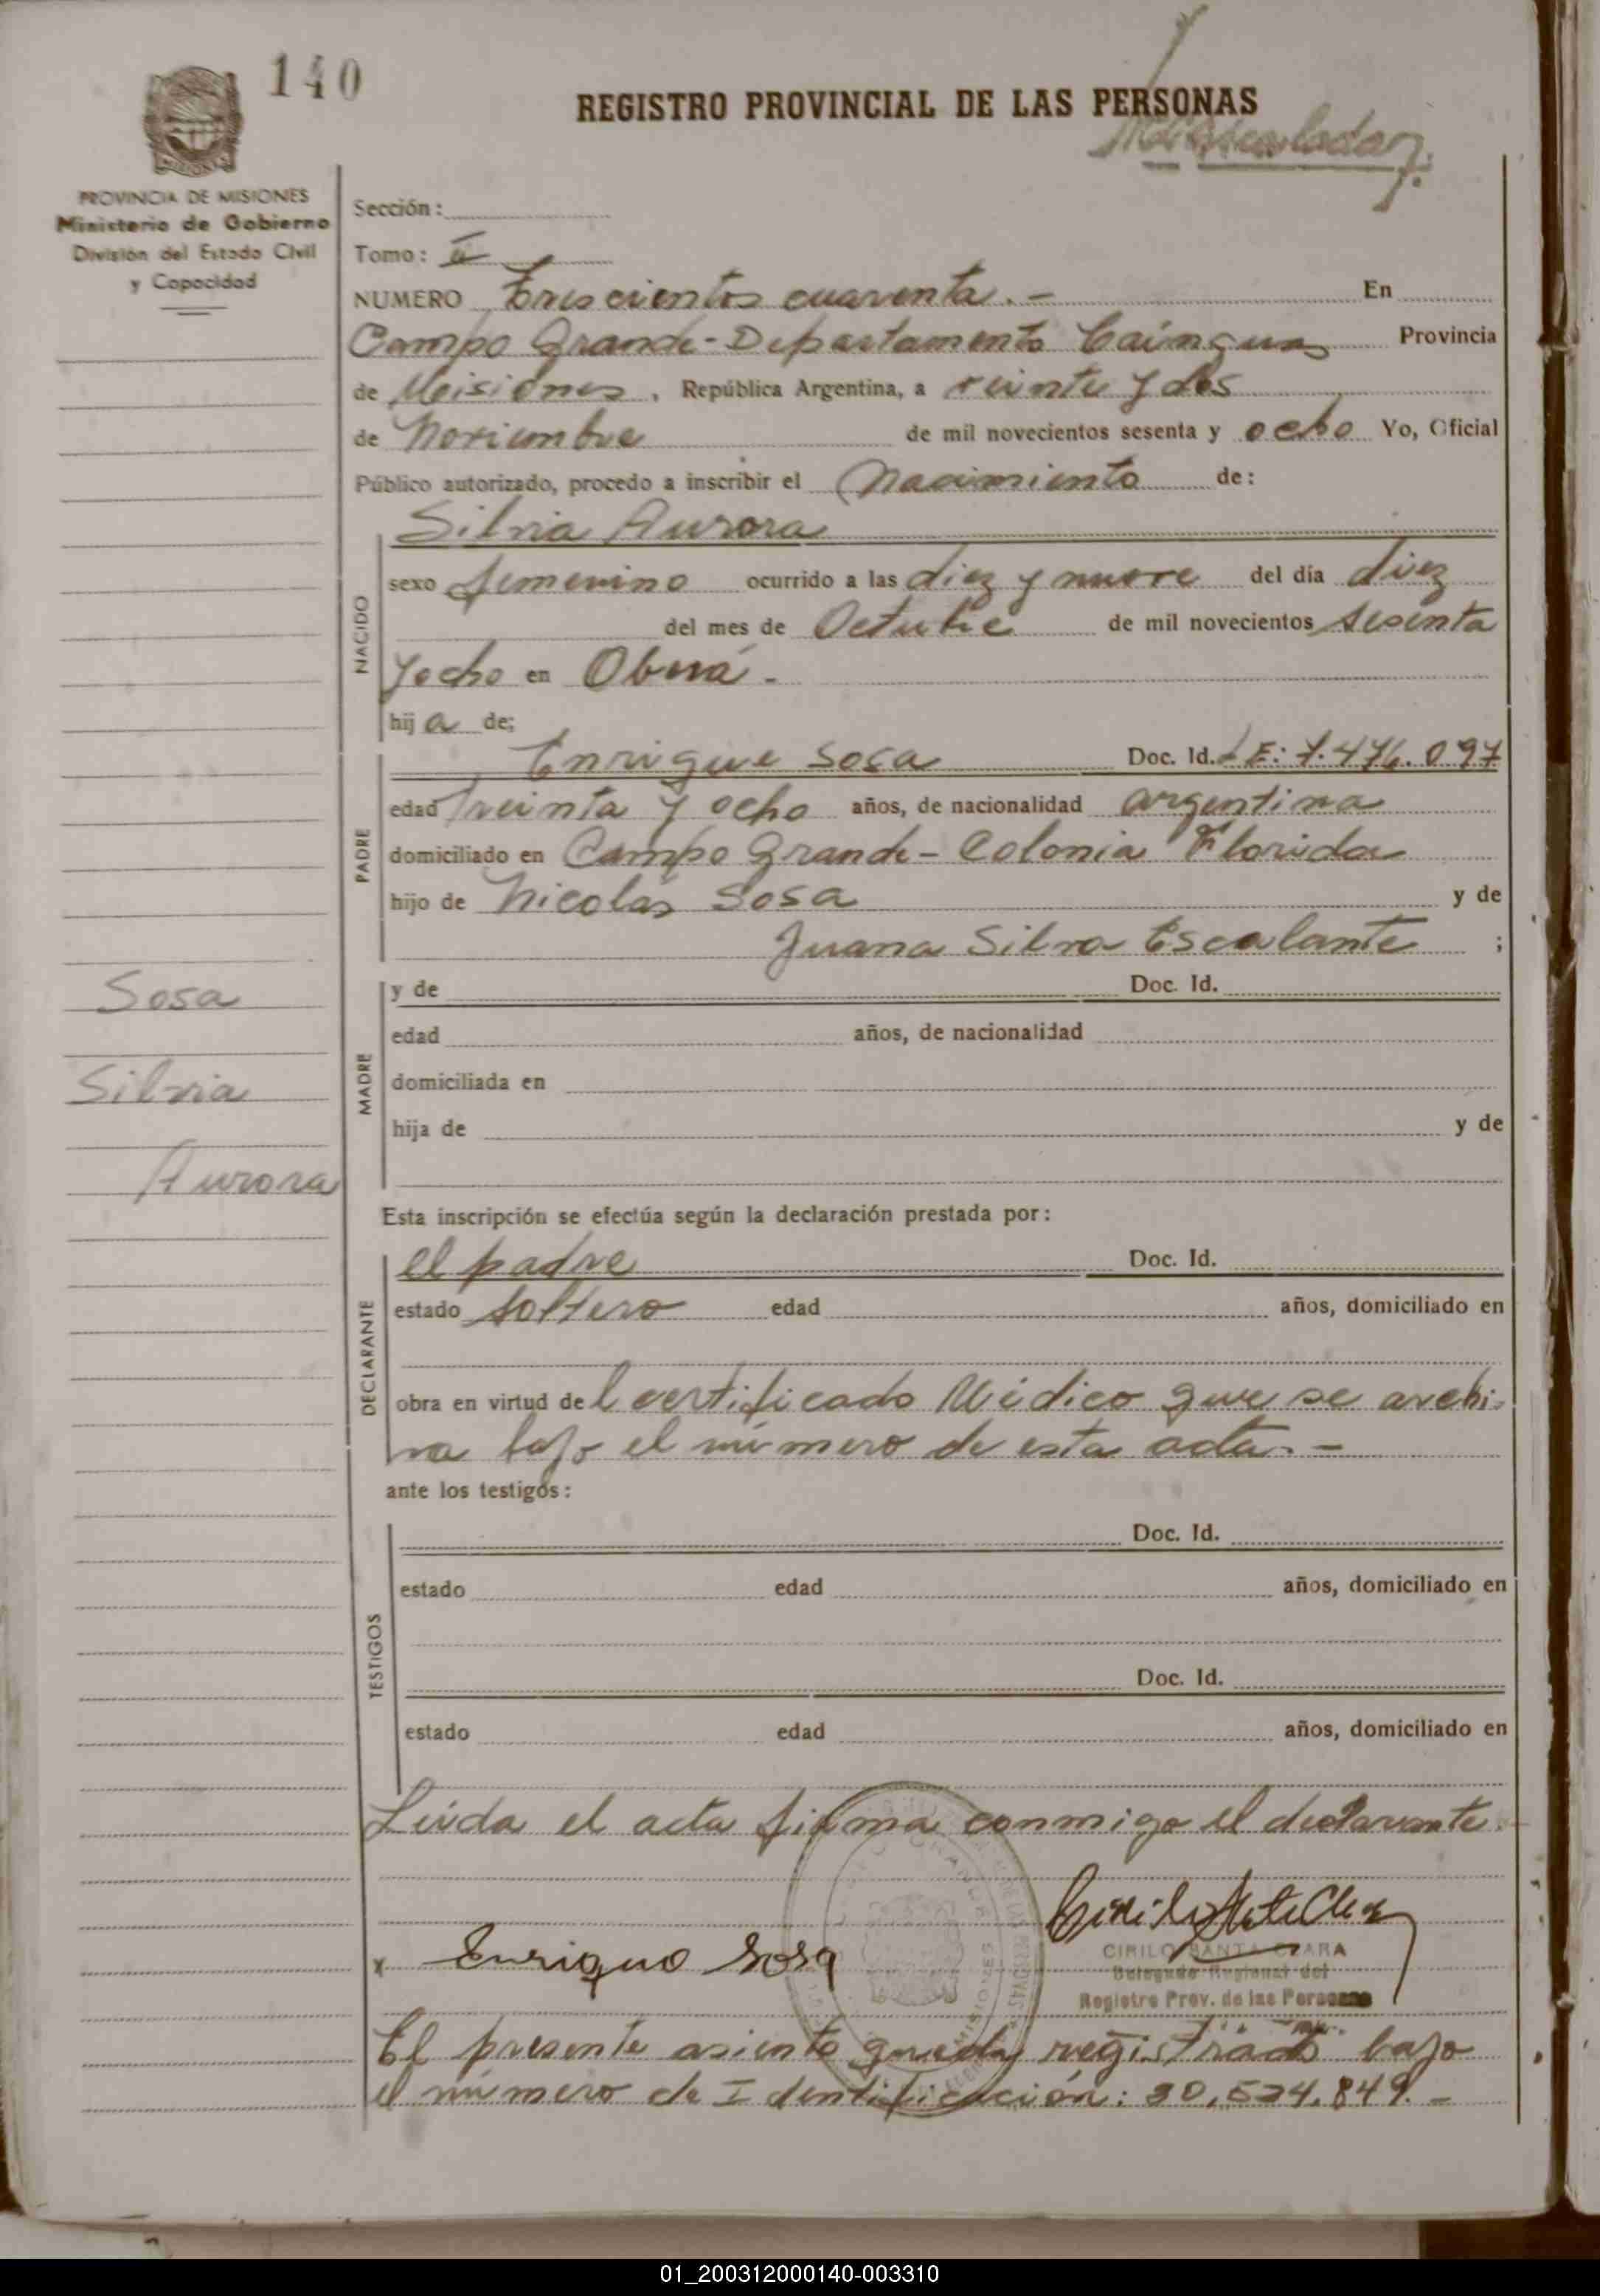 140
REGISTRO PROVINCIAL DE LAS PERSONAS
MISIONES
PROVINCIA DE MISIONES
Ministerio de Gobierno
División del Estado Civil
y Capacidad
Sección:
Tomo: II
NUMERO Trescientos cuarenta.- En
Campo Grande-Departamento Cainguas Provincia
de Misiones, República Argentina, a veinte y dos
de Noviembre de mil novecientos sesenta y ocho Yo, Oficial
Público autorizado, procedo a inscribir el Nacimiento de:
Silvia Aurora
NACIDO
sexo femenino ocurrido a las diez y nueve del día diez
del mes de Octubre de mil novecientos sesenta
y ocho en Oberá.-
hija de;
PADRE
Enrique Sosa Doc. Id. LE: 7.476.097
edad treinta y ocho años, de nacionalidad argentina
domiciliado en Campo Grande- Colonia Florida
hijo de Nicolás Sosa y de
Juana Silva Escalante ;
MADRE
y de Doc. Id.
edad años, de nacionalidad
domiciliada en
hija de y de
Sosa
Silvia
Aurora
Esta inscripción se efectúa según la declaración prestada por:
DECLARANTE
el padre Doc. Id.
estado soltero edad años, domiciliado en
obra en virtud del certificado Médico que se archi-
va bajo el número de esta acta.-
ante los testigos:
TESTIGOS
Doc. Id.
estado edad años, domiciliado en
Doc. Id.
estado edad años, domiciliado en
Leída el acta firma conmigo el declarante.
x Enrique Sosa
CIRILO SANTA CLARA
Delegado Regional del
Registro Prov. de las Personas
El presente asiento queda registrado bajo
el número de Identificación: 20.524.849.-
01_200312000140-003310